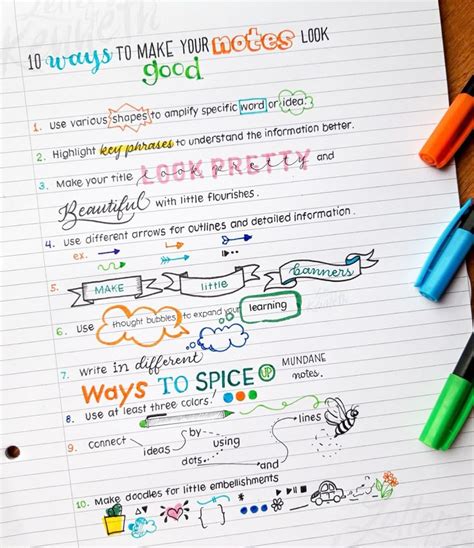 10 Ways TO MAKE YOUR notes LOOK
good
1. Use various shapes to amplify specific word or idea.
2. Highlight key phrases to understand the information better.
3. Make your title LOOK PRETTY and
Beautiful with little flourishes.
4. Use different arrows for outlines and detailed information.
ex.
5. MAKE little banners
6. Use thought bubbles to expand your learning
7. Write in different
Ways TO SPICE UP MUNDANE notes.
8. Use at least three colors!
9. Connect ideas by dots using and lines
10. Make doodles for little embellishments